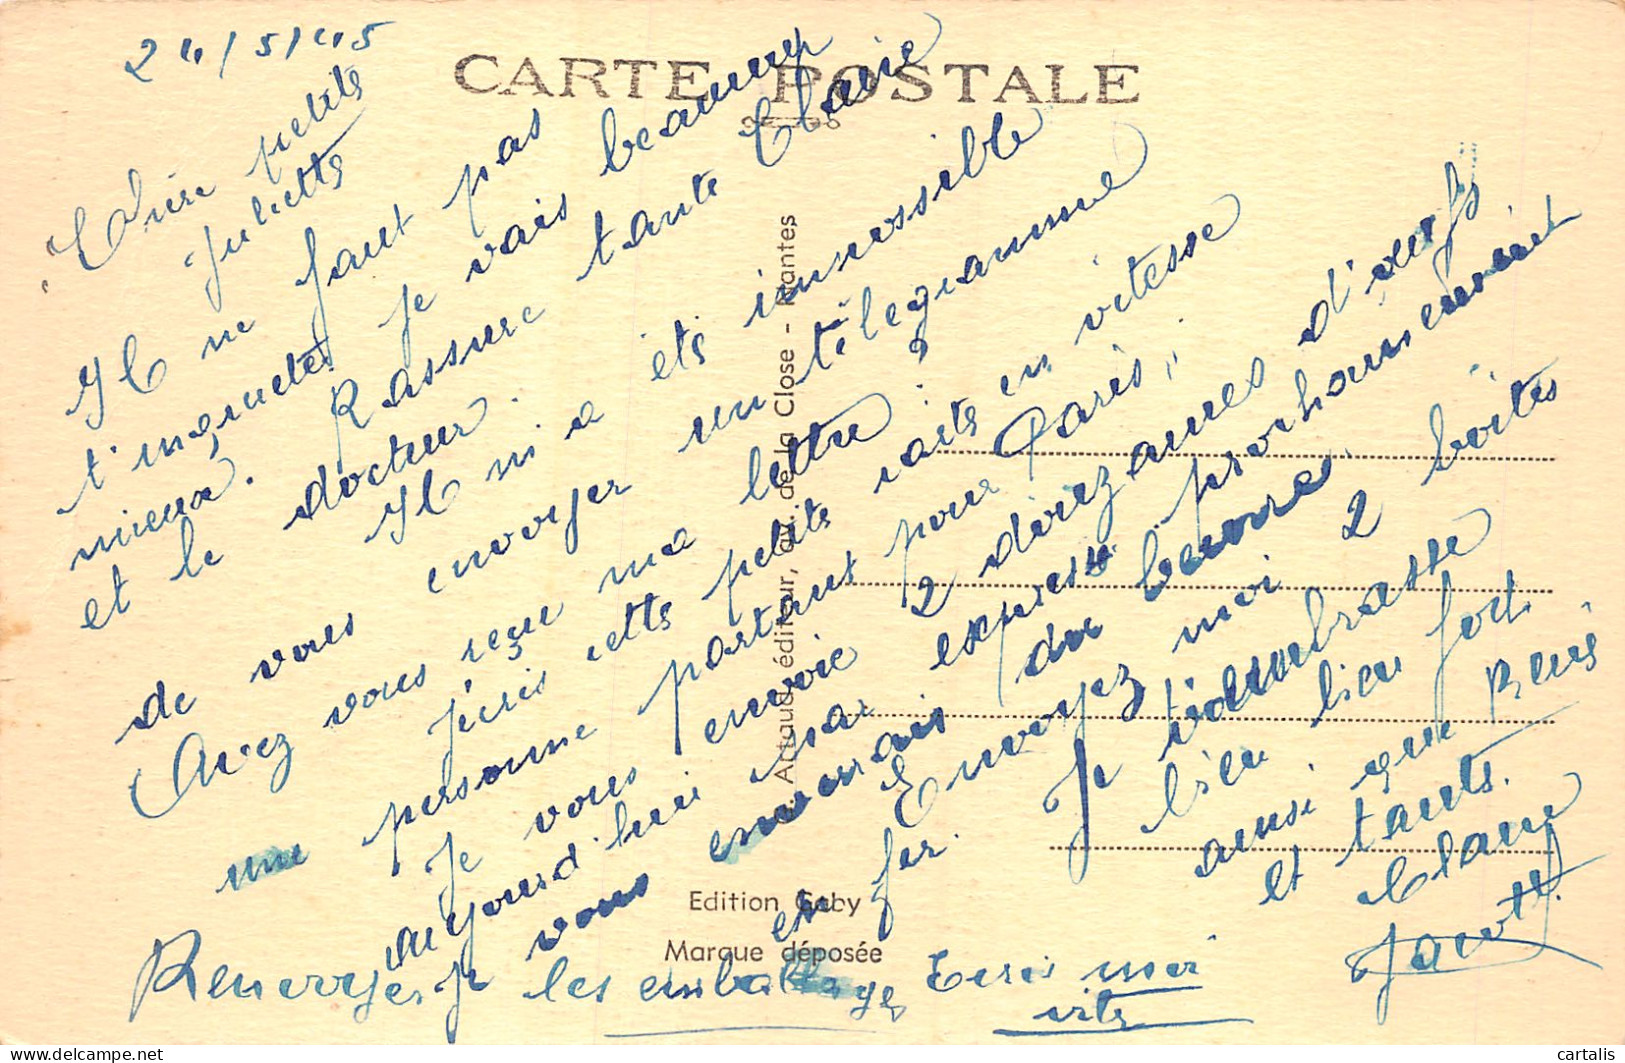 24/5/45
CARTE POSTALE
Chère petite
Juliette
Il ne faut pas
t'inquieter je vais beaucoup
mieux. Rassure tante Claire
et le docteur.
Il m'a été impossible
de vous envoyer un télégramme
Avez vous reçu ma lettre ?
J'écris cette petite carte en vitesse
une personne partant pour Paris,,
Je vous envoie 2 douzaines d'œufs
aujourd'hui par express
Je vous enverrais du beurre prochainement
en fer. Envoyez moi 2 boites
Je t'embrasse
bien bien fort
ainsi que René
et tante
Claire
Renvoyer les emballages Ecris moi
vite
Artaud éditeur, av. de la Close - Nantes
Edition Gaby
Marque déposée
cartalis